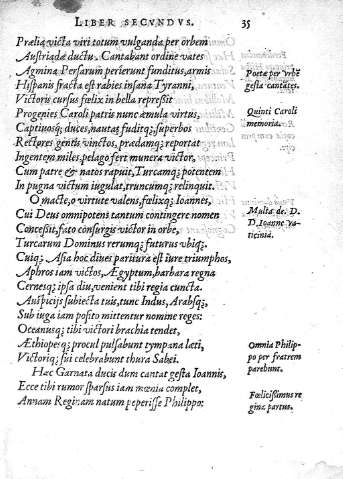 LIBER SECVNDVS. 35
Prælia victa viri totum vulganda per orbem
Austriadæ ductu. Cantabant ordine vates
Agmina Persarum perierunt funditus, armis
Hispanis fracta est rabies insana Tyranni,
Victoris cursus fœlix in bella repressit
Progenies Caroli patris nunc æmula virtus,
Captiuosq; duces, nautas fuditq; superbos
Rectores gentis vinctos, prædamq; reportat
Ingentem miles, pelago fert munera victor,
Cum patre & natos rapuit, Turcamq; potentem
In pugna victum iugulat, truncumq; relinquit.
O macte, o virtute valens, fœlixq; Ioannes,
Cui Deus omnipotens tantum contingere nomen
Concessit, fato consurgis victor in orbe,
Turcarum Dominus rerumq; futurus vbiq;.
Cuiq; Asia hoc diues paritura est iure triumphos,
Aphros iam victos, Ægyptum, barbara regna
Cernesq; ipsa diu, venient tibi regia cuncta.
Auspicijs subiecta tuis, tunc Indus, Arabsq;,
Sub iuga iam posito mittentur nomine reges:
Oceanusq; tibi victori brachia tendet,
Æthioperq; procul pulsabunt tympana læti,
Victoriq; sui celebrabunt thura Sabei.
Hæc Garnata ducis dum cantat gesta Ioannis,
Ecce tibi rumor sparsus iam mœnia complet,
Annam Reginam natum peperisse Philippo:
Poetæ per vrbē
gesta cantātes.
Quinti Caroli
memoria.
Multa de. D.
D. Ioanne va-
ticinia.
Omnia Philip-
po per fratrem
parebunt.
Fœlicissimus re
ginæ partus.